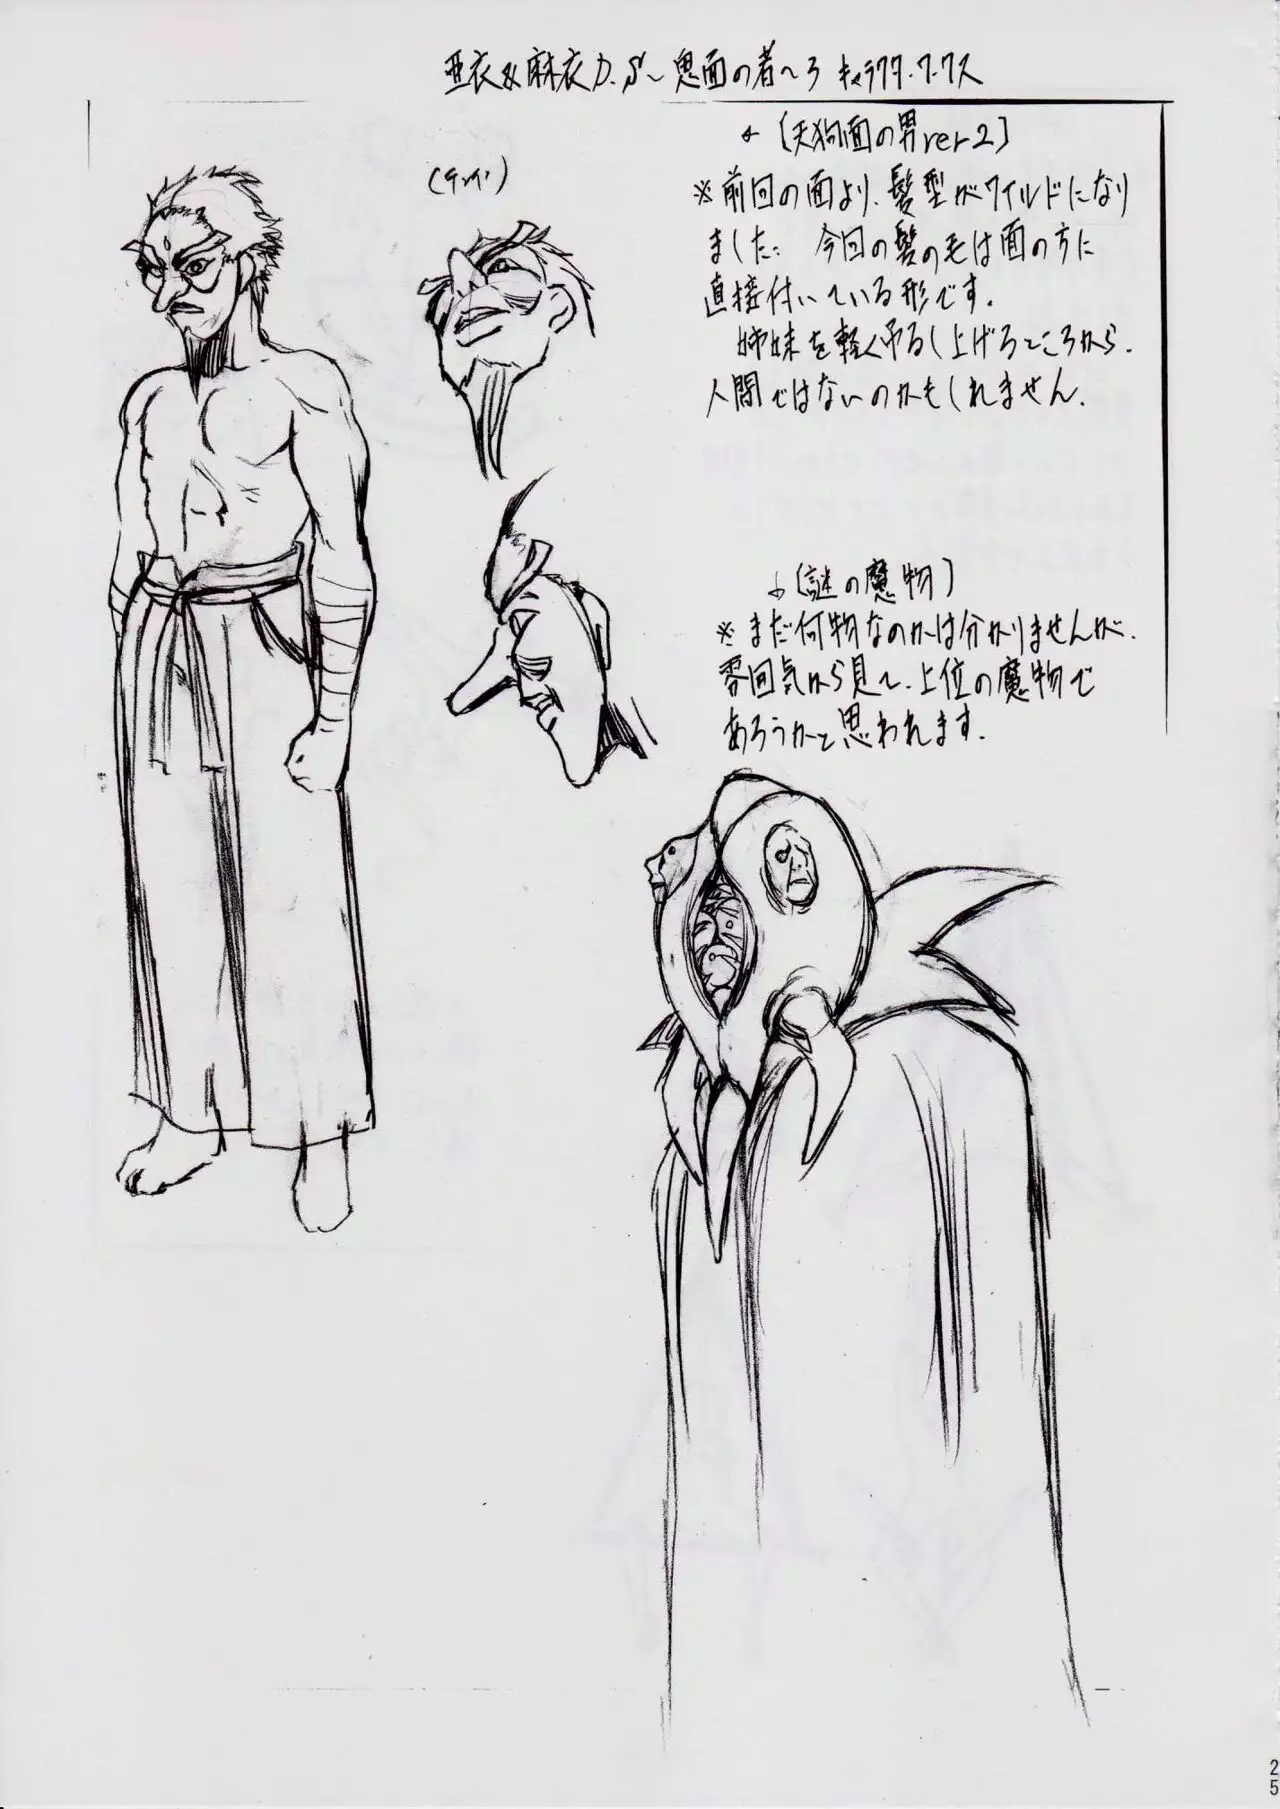 亜衣&麻衣D.S〜鬼面の者〜3 キャララフ・ワークス
← 〔天狗面の男ver2〕
※前回の面より、髪型がワイルドになり
ました。今回の髪の毛は面の方に
直接付いている形です。
姉妹を軽く吊るし上げるところから、
人間ではないのかもしれません。
↓〔謎の魔物〕
※まだ何物なのかは分かりませんが、
雰囲気から見て、上位の魔物で
あろうかと思われます。
25